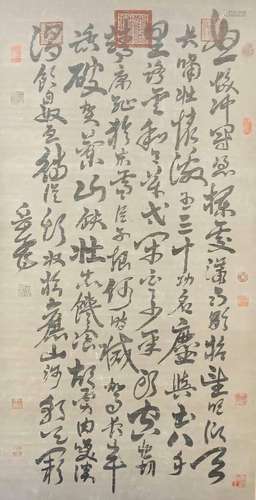 怒髮冲冠憑欄處瀟〻雨歇抬望眼仰天
長嘯壯懷激烈三十功名塵與土八千
里路雲和月莫等閒白了少年頭空悲切
靖康恥猶未雪臣子恨何時滅駕長車
踏破賀蘭山缺壯志饑餐胡虜肉笑談
渴飲匈奴血待從頭收拾舊山河朝天闕
岳飛